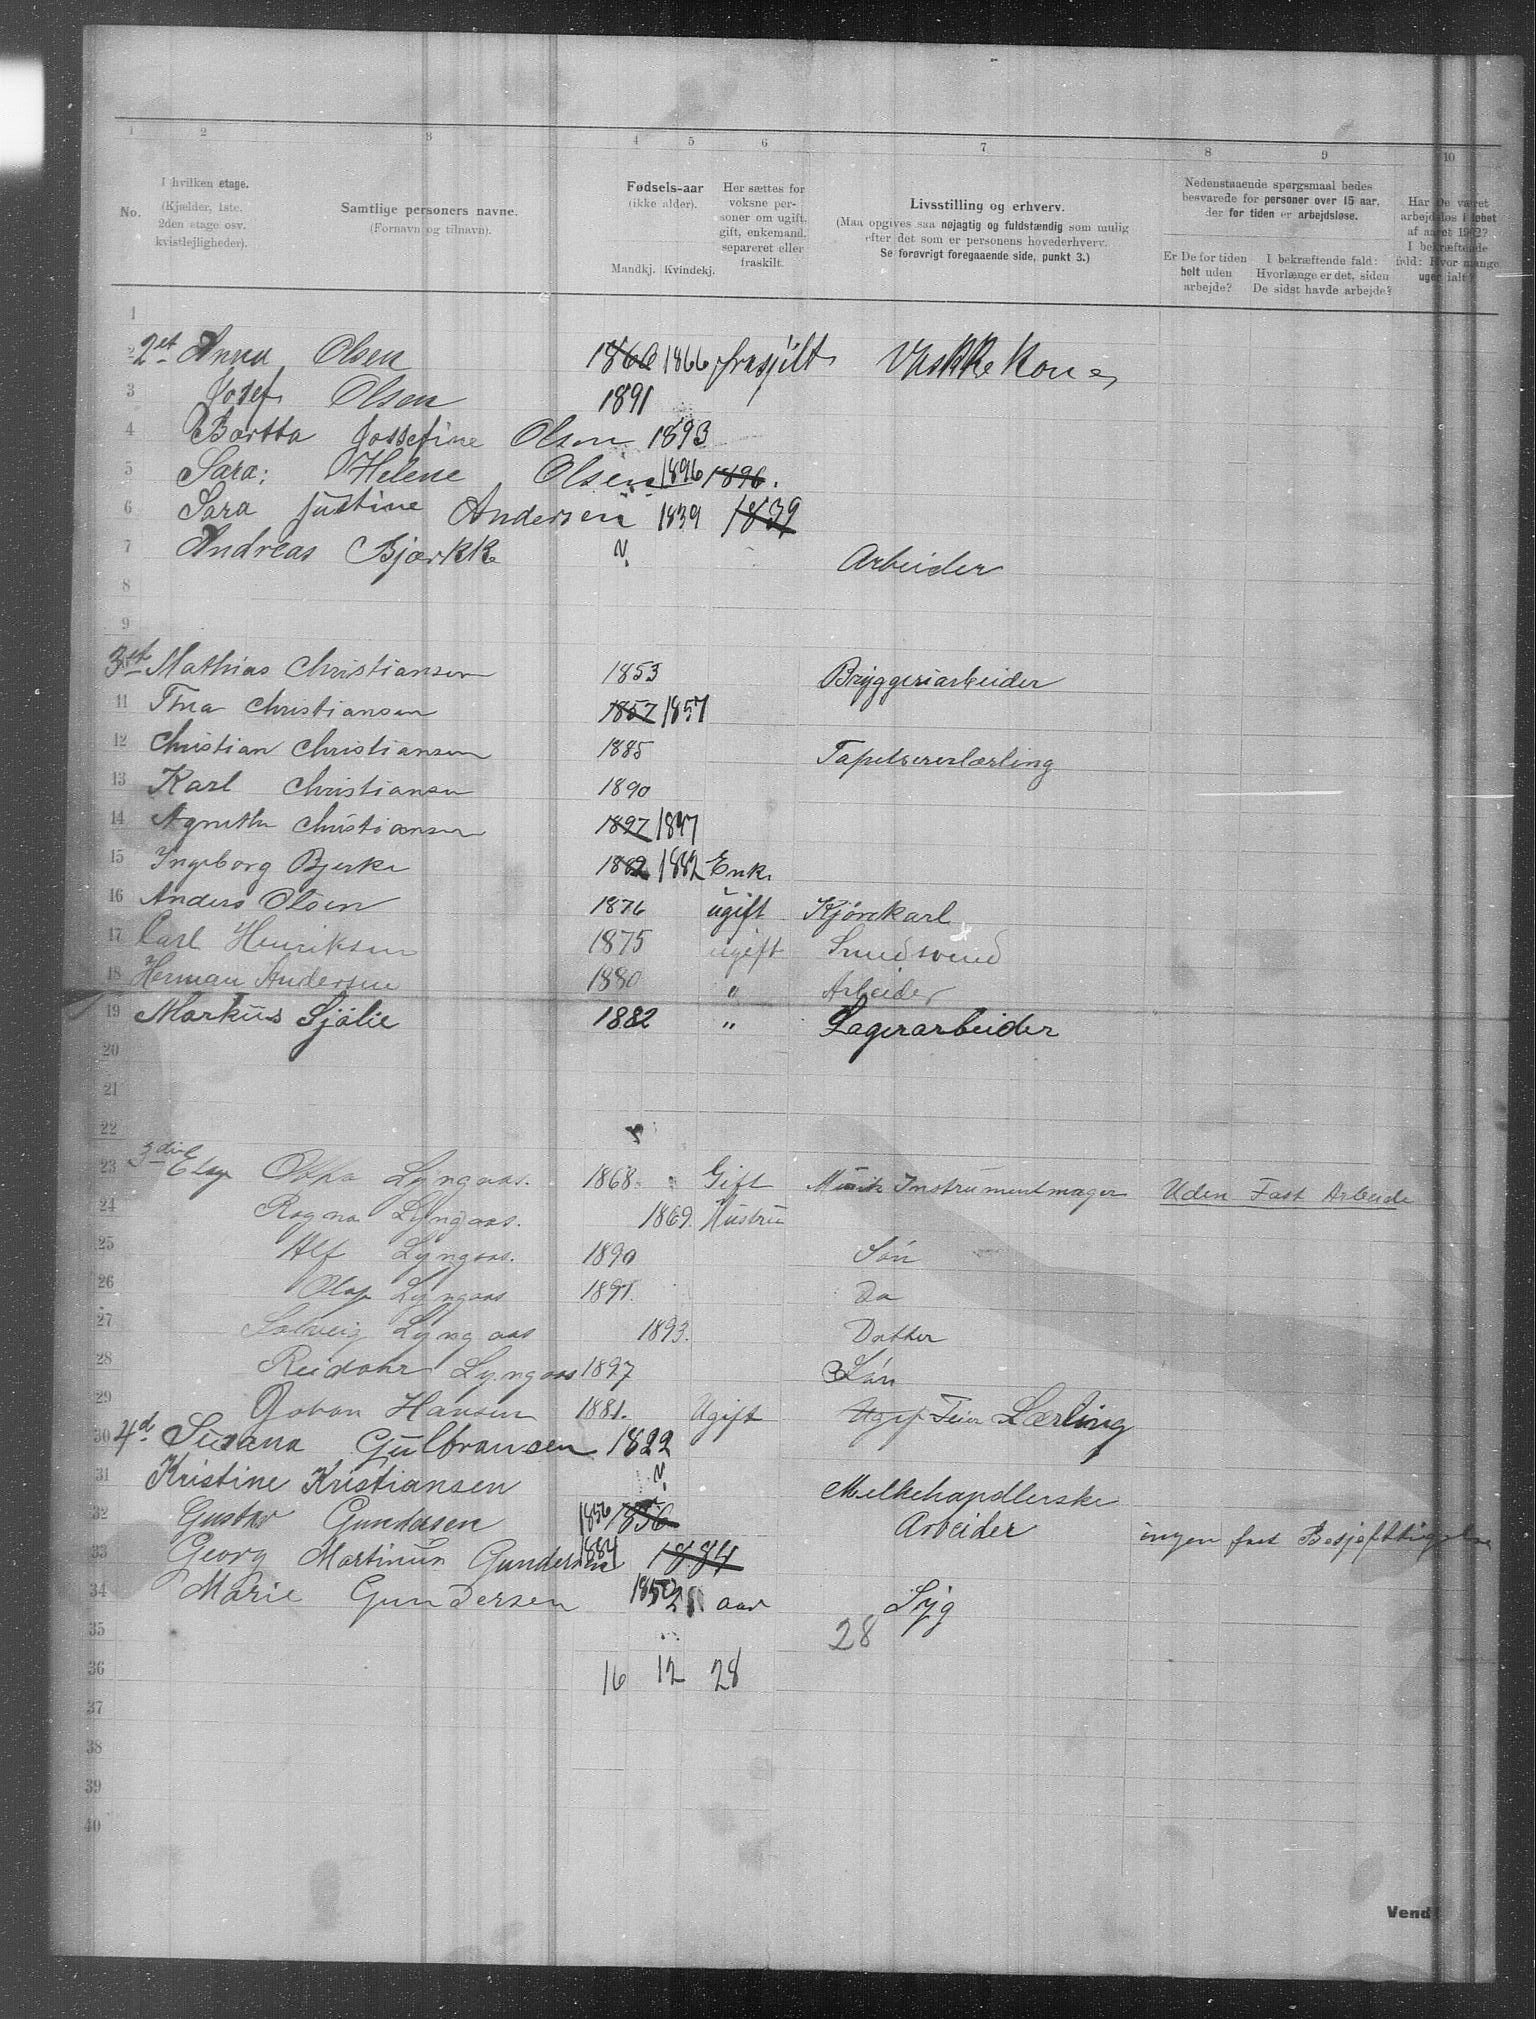 1 2 3 4 5 6 7 8 9 10
No.
I hvilken etage. (Kjælder, 1ste. 2den etage osv. kvistlejligheder).
Samtlige personers navne. (Fornavn og tilnavn).
Fødsels-aar (ikke alder).
Mandkj. Kvindekj.
Her sættes for voksne personer om ugift, gift, enkemand, separeret eller fraskilt.
Livsstilling og erhverv.
(Maa opgives saa nøjagtig og fuldstændig som mulig efter det som er personens hovederhverv.
Se forøvrigt foregaaende side, punkt 3.)
Nedenstaaende spørgsmaal bedes besvarede for personer over 15 aar, der for tiden er arbejdsløse.
Er De for tiden helt uden arbejde?
I bekræftende fald: Hvorlænge er det, siden De sidst havde arbejde?
Har De været arbejdsløs i løbet af aaret 1902? I bekræftende fald: Hvor mange uger ialt?
1
2 2et Anna Olsen 1866 1866 frasjilt Vaskkekone
3 Josef Olsen 1891
4 Bartta Jossefine Olsen 1893
5 Sara: Helene Olsen 1896 1896.
6 Sara Justine Andersen 1839 1839
7 Andreas Bjærkke ? Arbeider
8
9
3et Mathias Christiansen 1853 Bryggeriarbeider
11 Thea Christiansen 1857 1857
12 Christian Christiansen 1885 Tapetsererlærling
13 Karl Christiansen 1890
14 Agnethe Christiansen 1897 1897
15 Ingeborg Bjerke 1882 1882 Enke
16 Anders Olsen 1876 ugift Kjørekarl
17 Carl Henriksen 1875 ugift Smedsvend
18 Herman Andersen 1880 " Arbeider
19 Markus Sjølie 1882 " Lagerarbeider
20
21
22
23 3die Etage Lyngaas. 1868 Gift Musik Instrumentmager Uden Fast Arbeide
24 Ragna Lyngaas. 1869. Hustru
25 Alf Lyngaas. 1890 Søn
26 Olaf Lyngaas 1891. Do
27 Solveig Lyngaas 1893. Datter
28 Reidahr Lyngaas 1897 Søn
29 Johan Hansen 1881. Ugift Ugif Feier Lærling
30 4d Susana Gulbransen 1822
31 Kristine Kristiansen ? Melkehandlerske
32 Gustav Gundersen 1856 1856 Arbeider ingen fast Besjefttigelse
33 Georg Martinus Gundersen 1884 1884
34 Marie Gundersen 1850 aar Syg
35 28
36 16 12 28
37
38
39
40
Vend!